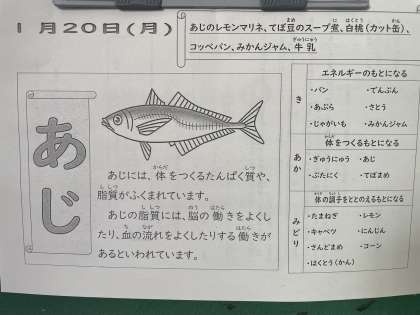 1月20日(月)
あじのレモンマリネ、てぼ豆のスープ煮、白桃(カット缶)、
コッペパン、みかんジャム、牛乳
あじ
あじには、体をつくるたんぱく質や、
脂質がふくまれています。
あじの脂質には、脳の働きをよくし
たり、血の流れをよくしたりする働きが
あるといわれています。
き
エネルギーのもとになる
・パン ・でんぷん
・あぶら ・さとう
・じゃがいも ・みかんジャム
あか
体をつくるもとになる
・ぎゅうにゅう ・あじ
・ぶたにく ・てぼまめ
みどり
体の調子をととのえるもとになる
・たまねぎ ・レモン
・キャベツ ・にんじん
・さんどまめ ・コーン
・はくとう(かん)